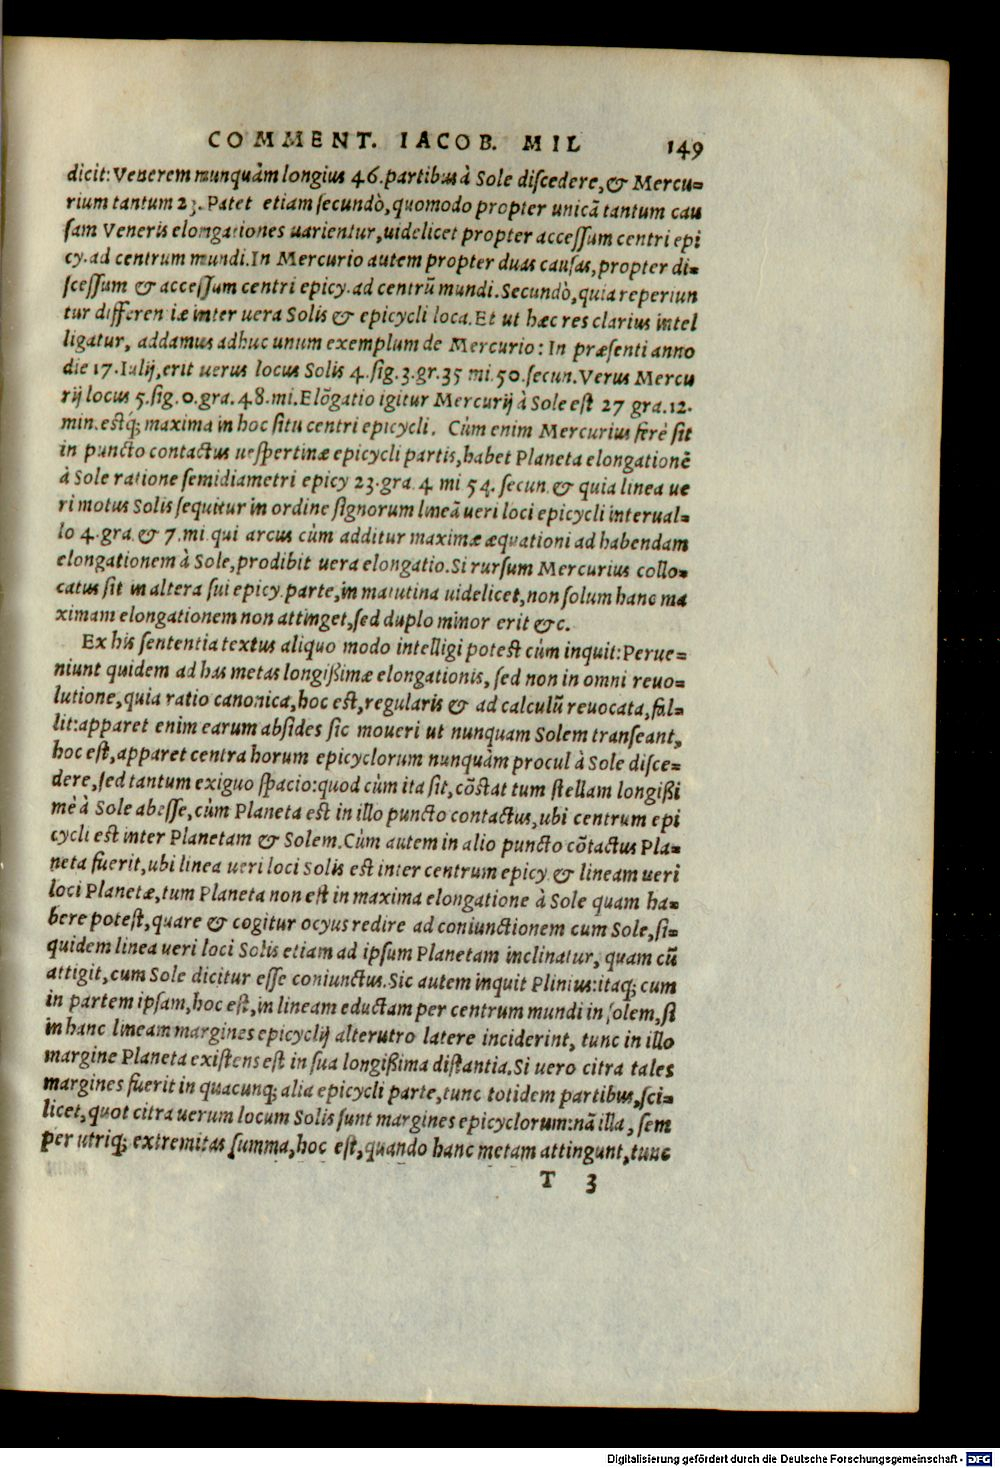 COMMENT. IACOB. MIL 149
dicit: Venerem nunquàm longius 46. partibus à Sole discedere, & Mercu=
rium tantum 23. Patet etiam secundò, quomodo propter unicã tantum cau
sam Veneris elongationes uarientur, uidelicet propter accessum centri epi
cy. ad centrum mundi. In Mercurio autem propter duas causas, propter di=
scessum & accessum centri epicy. ad centrũ mundi. Secundò, quia reperiun
tur differen iæ inter uera Solis & epicycli loca. Et ut hæc res clarius intel
ligatur, addamus adhuc unum exemplum de Mercurio: In præsenti anno
die 17. Iulij, erit uerus locus Solis 4. sig. 3. gr. 35 mi. 50. secun. Verus Mercu
rij locus 5. sig. 0. gra. 48. mi. Elõgatio igitur Mercurij à Sole est 27 gra. 12.
min. estq; maxima in hoc situ centri epicycli. Cùm enim Mercurius ferè sit
in puncto contactus uespertinæ epicycli partis, habet Planeta elongationẽ
à Sole ratione semidiametri epicy 23. gra. 4 mi 54. secun. & quia linea ue
ri motus Solis sequitur in ordine signorum lineã ueri loci epicycli interual=
lo 4. gra. & 7. mi. qui arcus cùm additur maximæ æquationi ad habendam
elongationem à Sole, prodibit uera elongatio. Si rursum Mercurius collo=
catus sit in altera sui epicy. parte, in matutina uidelicet, non solum hanc ma
ximam elongationem non attinget, sed duplo minor erit &c.
Ex his sententia textus aliquo modo intelligi potest cùm inquit: Perue=
niunt quidem ad has metas longißimæ elongationis, sed non in omni reuo=
lutione, quia ratio canonica, hoc est, regularis & ad calculũ reuocata, fal=
lit: apparet enim earum absides sic moueri ut nunquam Solem transeant,
hoc est, apparet centra horum epicyclorum nunquàm procul à Sole disce=
dere, sed tantum exiguo spacio: quod cùm ita sit, cõstat tum stellam longißi
mè à Sole abesse, cùm Planeta est in illo puncto contactus, ubi centrum epi
cycli est inter Planetam & Solem. Cùm autem in alio puncto cõtactus Pla=
neta fuerit, ubi linea ueri loci Solis est inter centrum epicy. & lineam ueri
loci Planetæ, tum Planeta non est in maxima elongatione à Sole quam ha=
bere potest, quare & cogitur ocyus redire ad coniunctionem cum Sole, si=
quidem linea ueri loci Solis etiam ad ipsum Planetam inclinatur, quam cũ
attigit, cum Sole dicitur esse coniunctus. Sic autem inquit Plinius: itaq; cum
in partem ipsam, hoc est, in lineam eductam per centrum mundi in solem, si
in hanc lineam margines epicyclij alterutro latere inciderint, tunc in illo
margine Planeta existens est in sua longißima distantia. Si uero citra tales
margines fuerit in quacunq; alia epicycli parte, tunc totidem partibus, sci=
licet, quot citra uerum locum Solis sunt margines epicyclorum: nã illa, sem
per utriq; extremitas summa, hoc est, quando hanc metam attingunt, tunc
T 3
Digitalisierung gefördert durch die Deutsche Forschungsgemeinschaft - DFG